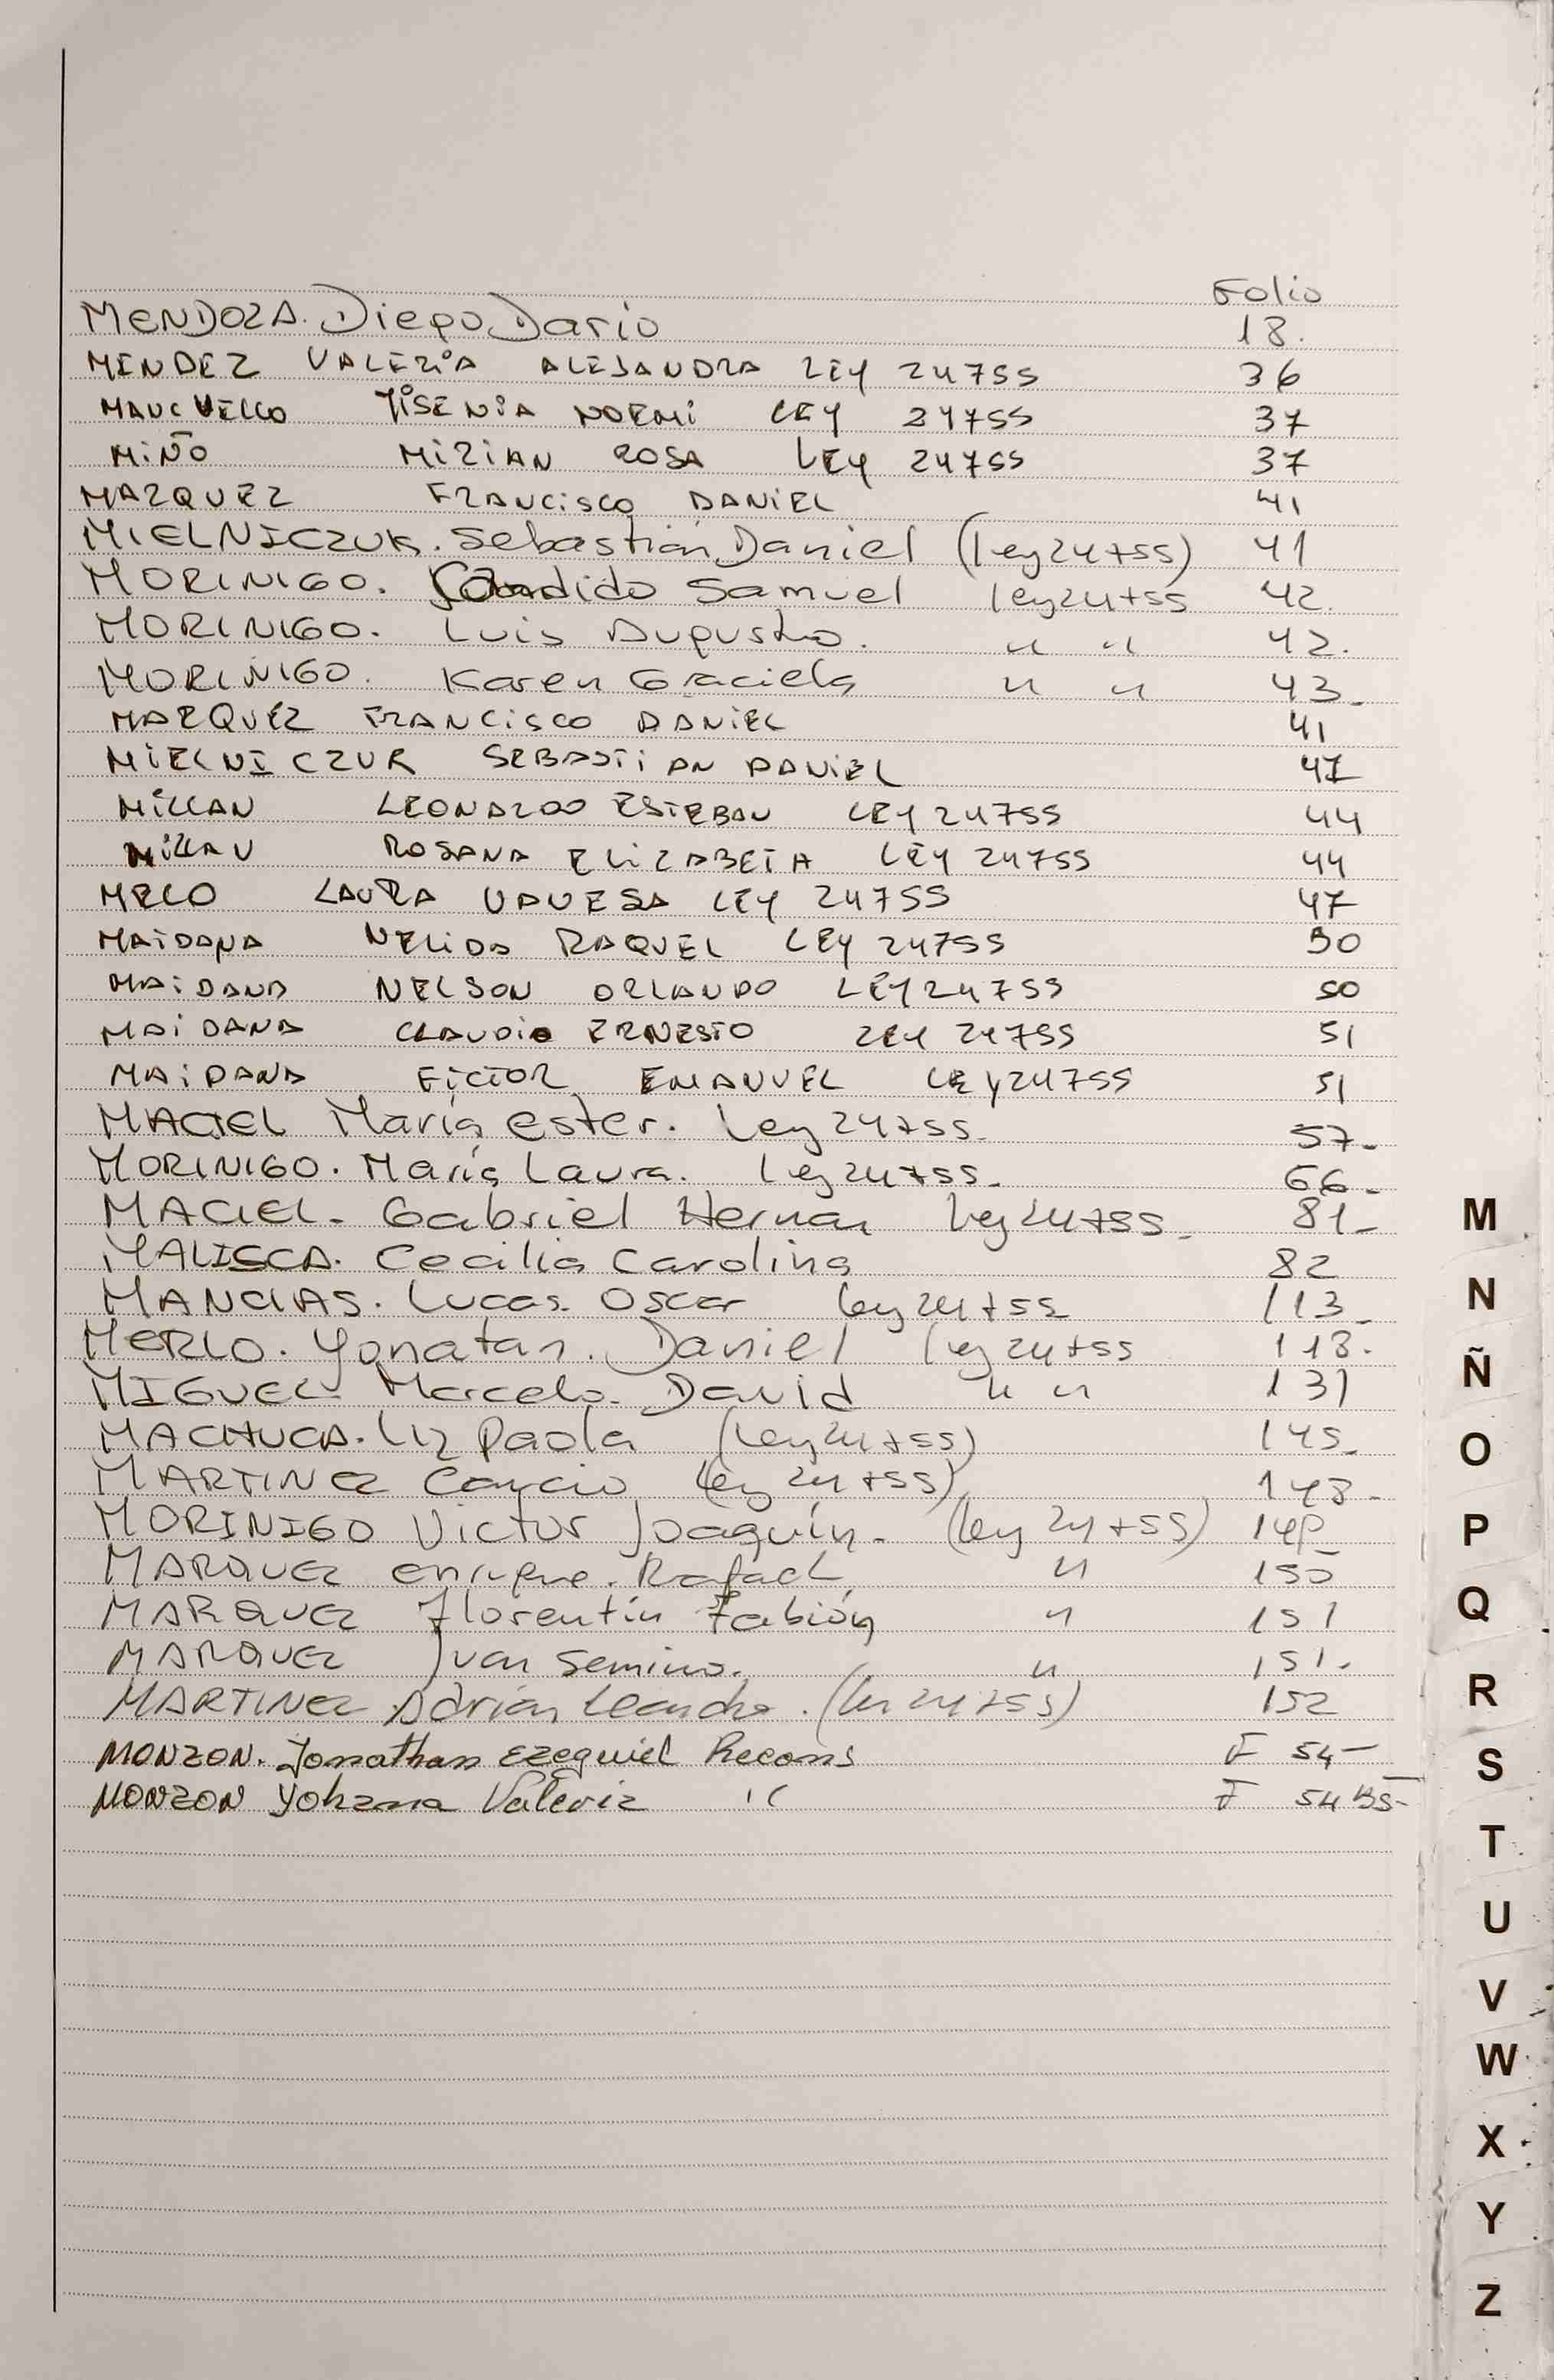 Folio
MENDOZA. Diego Dario 18.
MENDEZ VALERIA ALEJANDRA LEY 24755 36
YISENIA NOEMI LEY 24755 37
MIÑO MIRIAN ROSA LEY 24755 37
MARQUEZ FRANCISCO DANIEL 41
MIELNICZUK. Sebastián Daniel (ley 24755) 41
MORINIGO. Candido Samuel ley 24755 42.
MORINIGO. Luis Augusto. " " 42.
MORINIGO. Karen Graciela " " 43-
MARQUEZ FRANCISCO DANIEL 41
MIELNICZUK SEBASTIAN DANIEL 41
MILLAN LEONARDO ESTEBAN LEY 24755 44
MILLAN ROSANA ELIZABETH LEY 24755 44
MELO LAURA VANESA LEY 24755 47
MAIDANA NELIDA RAQUEL LEY 24755 50
MAIDANA NELSON ORLANDO LEY 24755 50
MAIDANA CLAUDIO ERNESTO LEY 24755 51
MAIDANA FICTOR EMANUEL LEY 24755 51
MACIEL María Ester. Ley 24755- 57-
MORINIGO. María Laura. Ley 24755- 66-
MACIEL- Gabriel Hernan Ley 24755- 81-
MALISCA. Cecilia Carolina 82
MANCIAS. Lucas. Oscar ley 24755 113-
MERLO. Yonatan. Daniel ley 24755 118.
MIGUEL Marcelo. David " " 131
MACHUCA. Liz Paola (ley 24755) 145-
MARTINEZ (ley 24755) 148-
MORINIGO Victor Joaquín- (ley 24755)
MARQUEZ enrique. Rafael " 150
MARQUEZ Florentín Fabián " 151
MARQUEZ Ivan Semino. " 151.
MARTINEZ Adrián Leandro. (ley 24755) 152
MONZON. Jonathan Ezequiel Recons F 54-
MONZON Yohana Valeria " F 54 Bis-
M
N
Ñ
O
P
Q
R
S
T
U
V
W
X
Y
Z